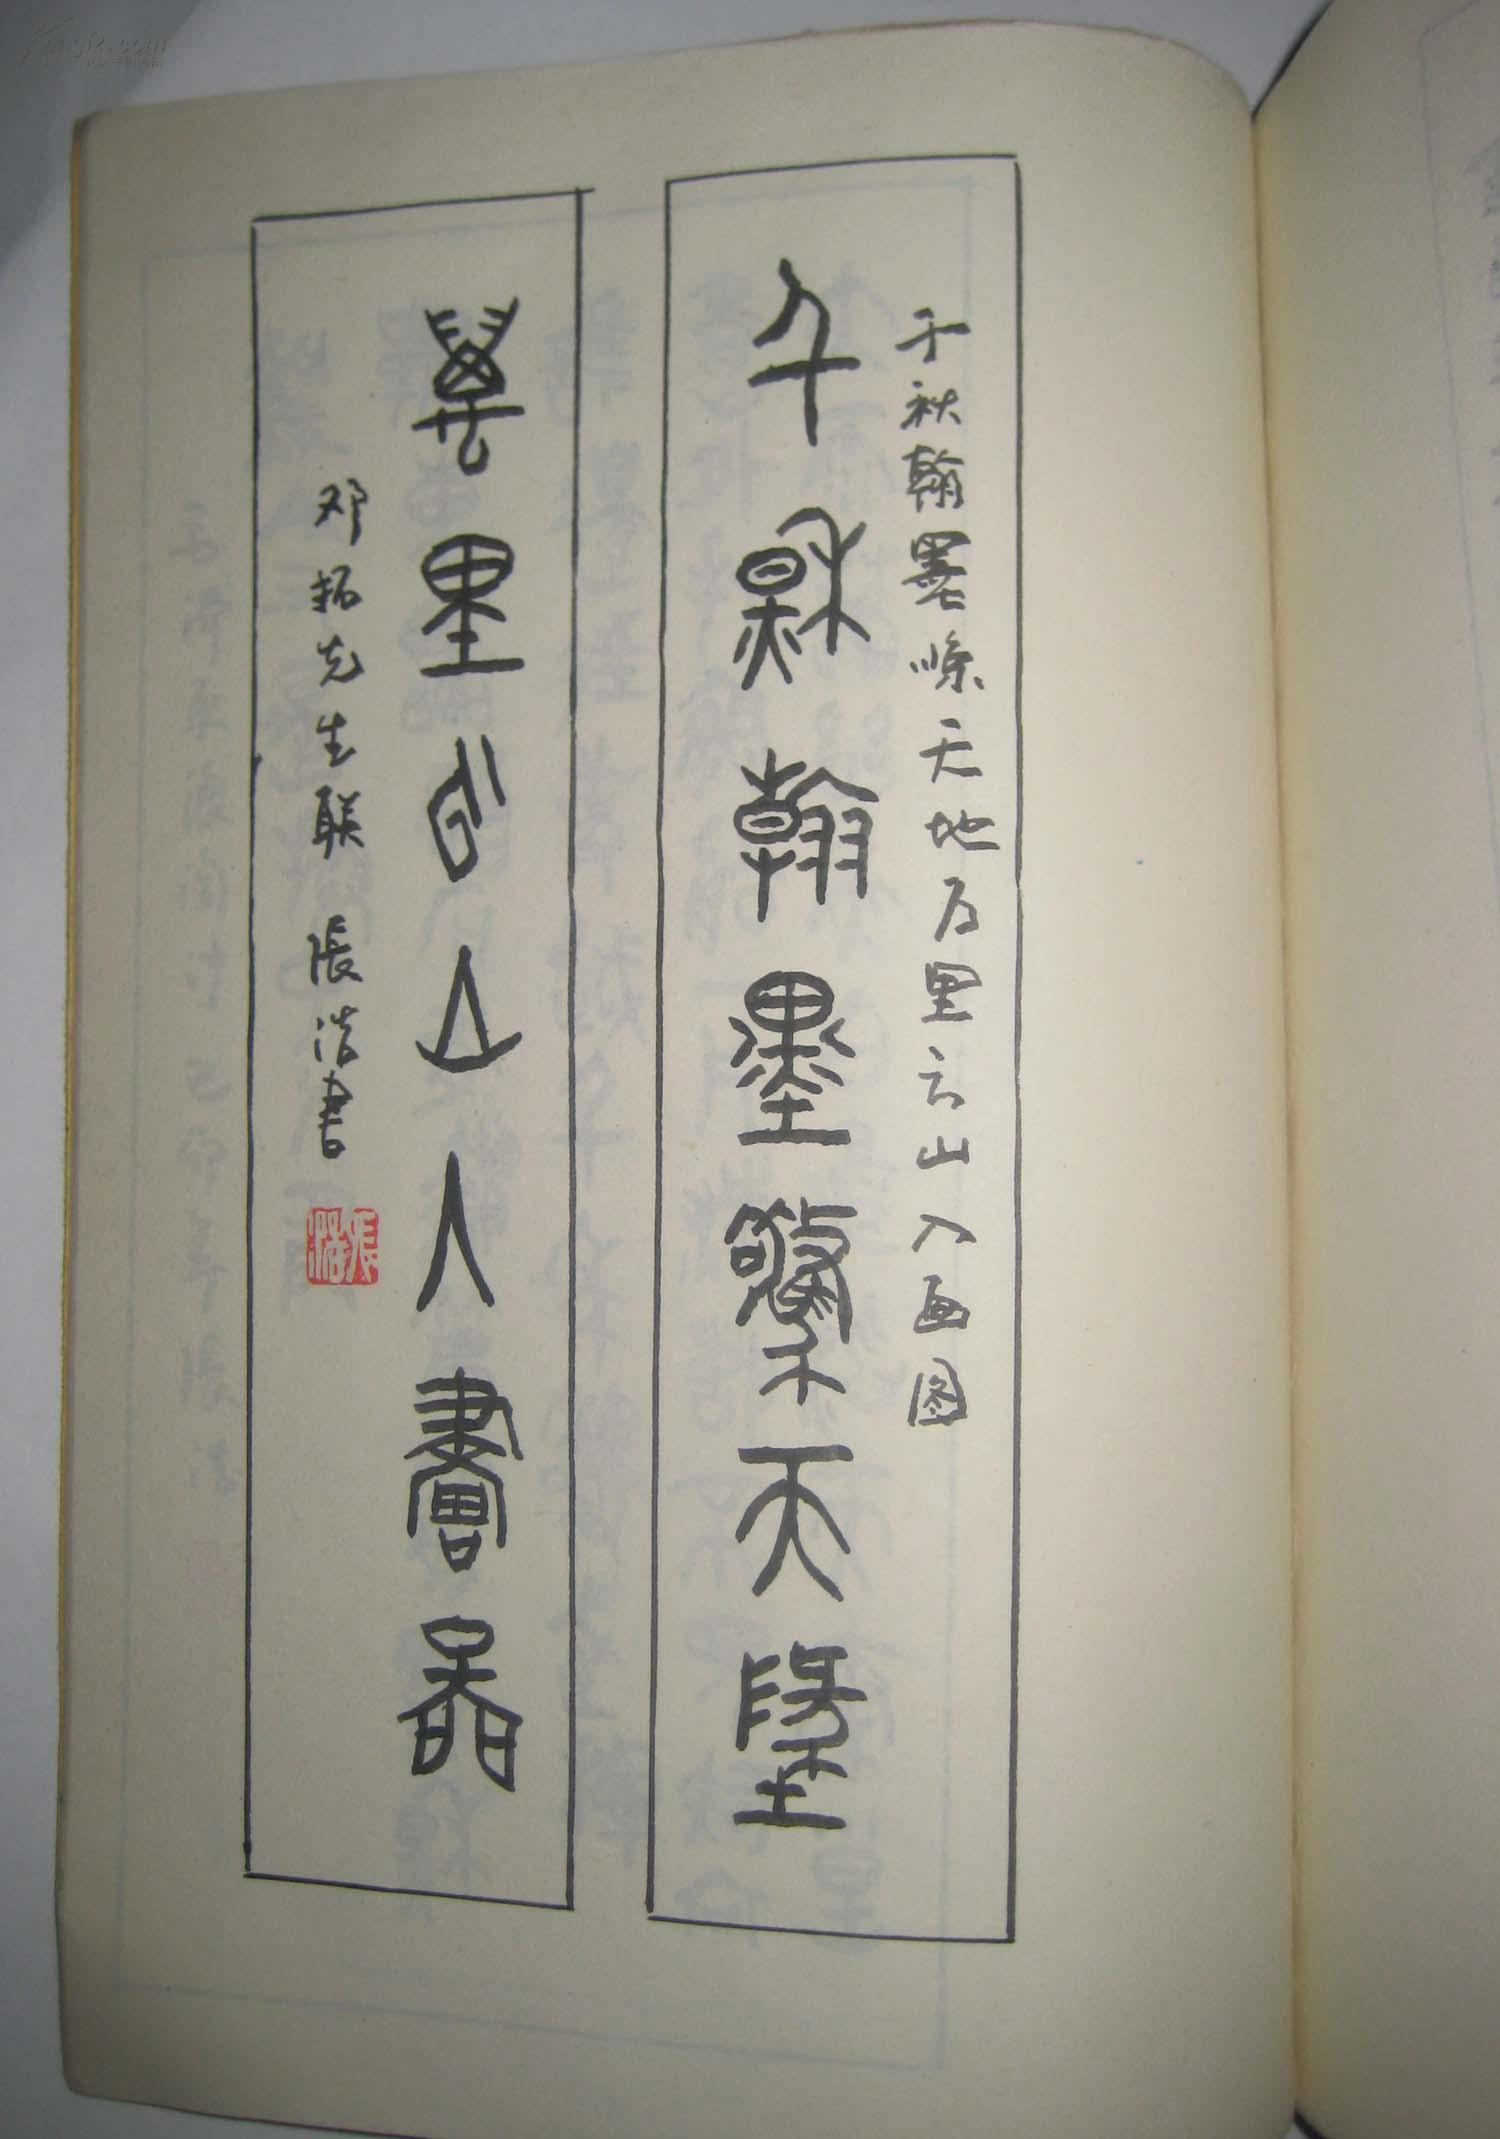 千秋翰墨惊天地万里云山入画图
千秋翰墨驚天墬
萬里云山入畫圖
邓拓先生联 張浩書
張浩